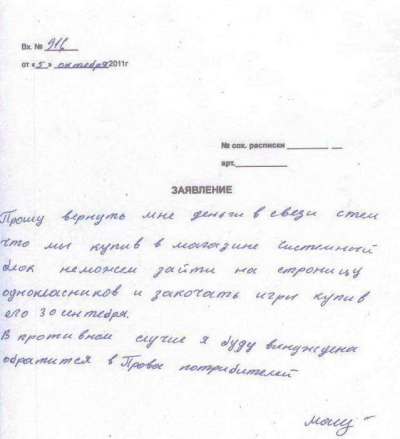 Вх. № 916
от «5» октебря 2011г
№ сох. расписки
арт.
ЗАЯВЛЕНИЕ
Прошу вернуть мне деньги в свези стем
что мы купив в магазине системный
блок неможем зайти на строницу
однокласников и закочать игры купив
его 30 сентебря.
В противном случие я буду винуждена
обратится в Права потрибителей